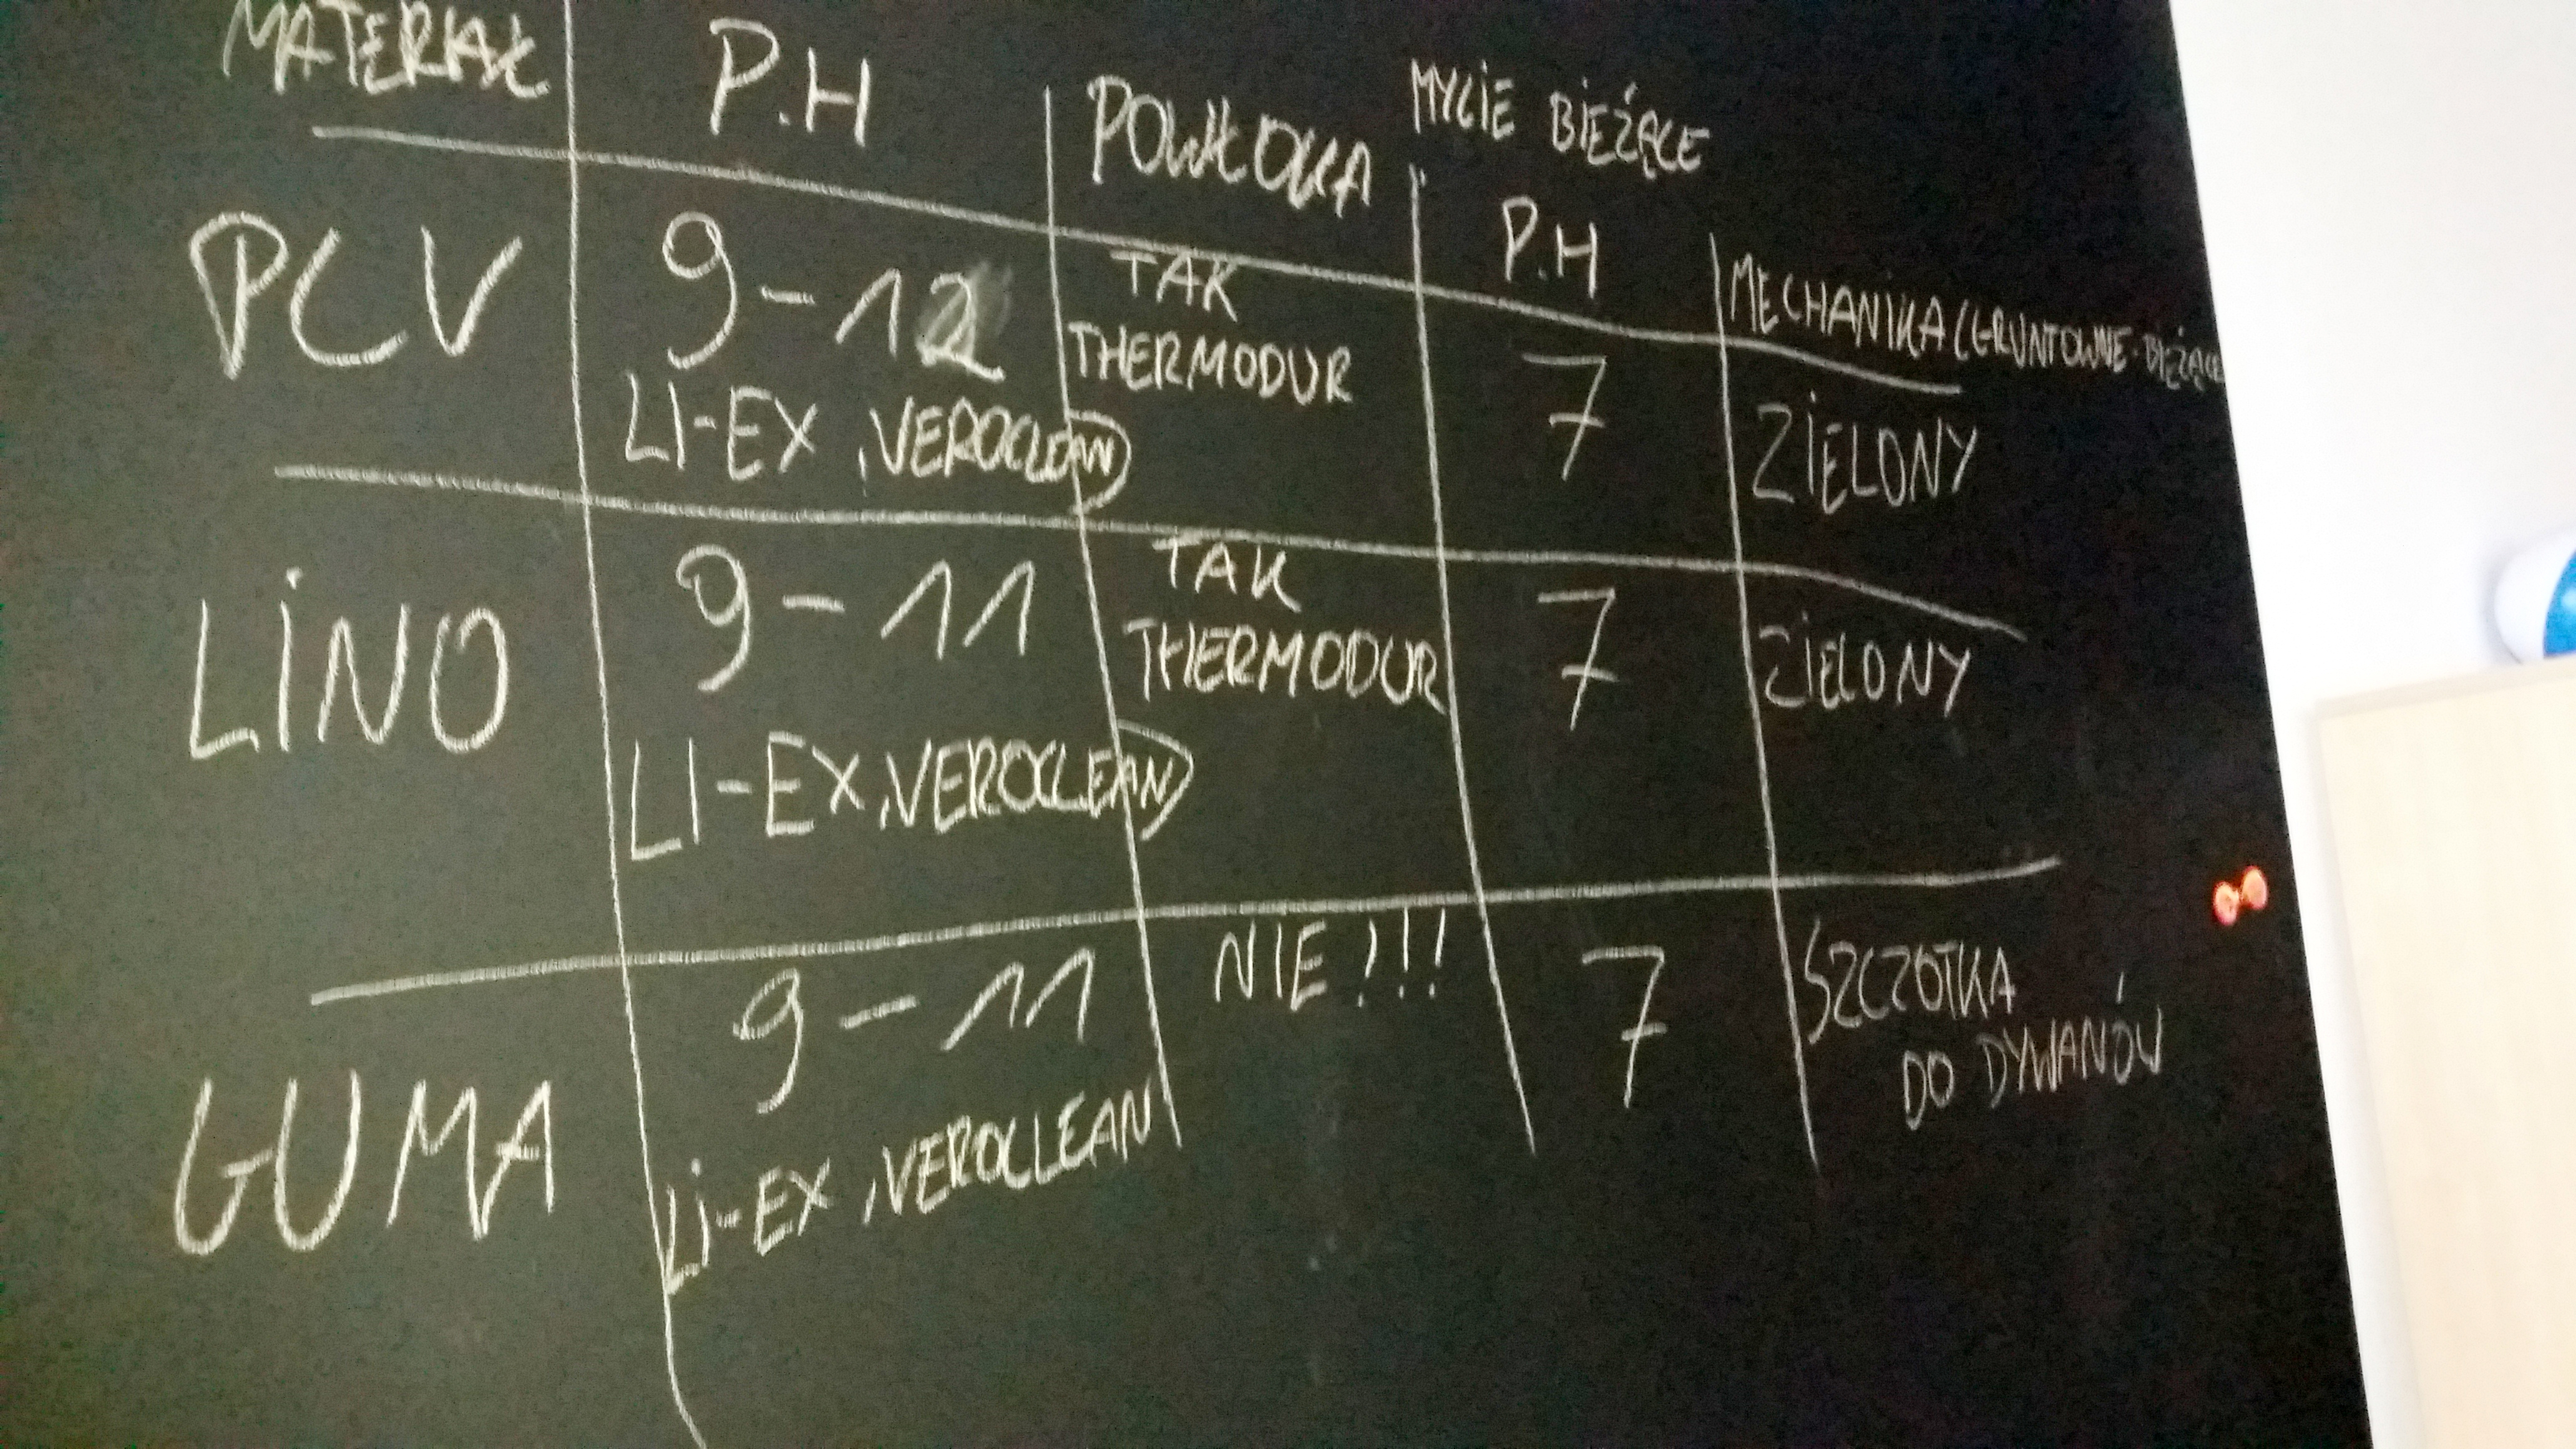 MATERIAŁ P.H POWŁOKA MYCIE BIEŻĄCE P.H MECHANIKA (GRUNTOWNE-BIEŻĄCE
PCV 9-12 TAK 7 ZIELONY
LI-EX, VEROCLEAN) THERMODUR
LINO 9-11 TAK 7 ZIELONY
LI-EX, VEROCLEAN) THERMODUR
GUMA 9-11 NIE!!! 7 SZCZOTKA
LI-EX, VEROCLEAN DO DYWANÓW